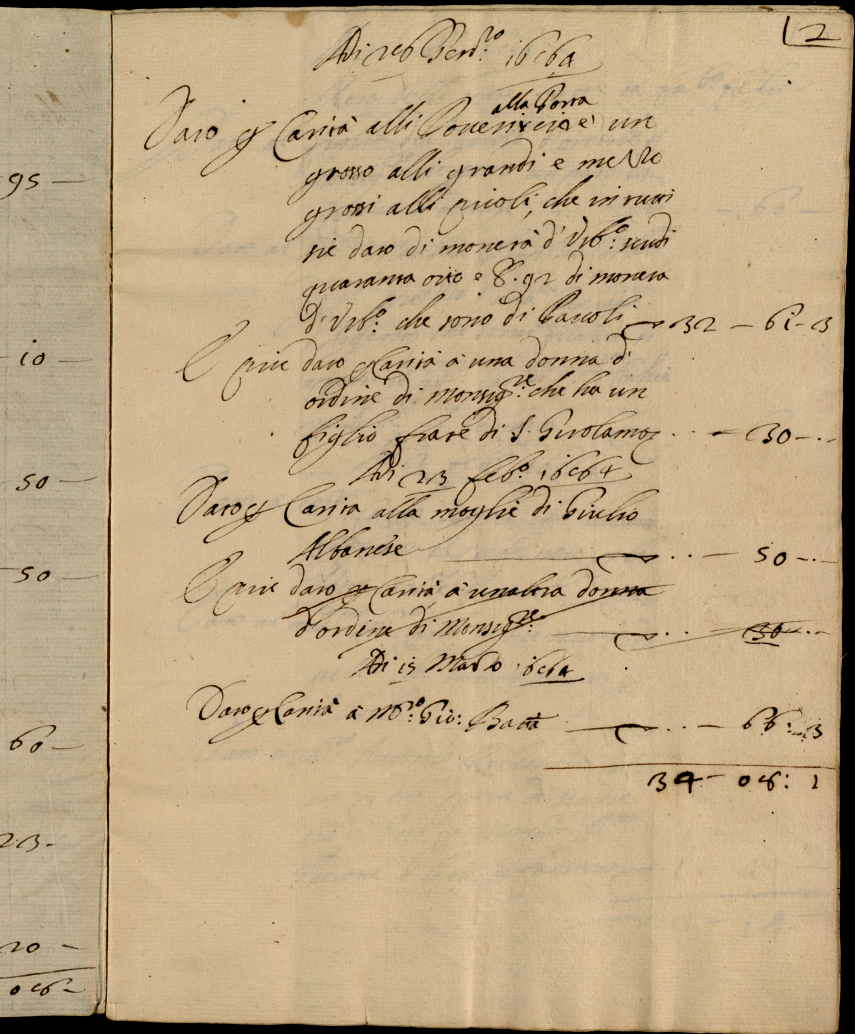 12
Adi 28 Genn.ro 1684
alla Porta
Dato p Carità alli Poveri cioè un
grosso alli grandi e mezzo
grosso alli picoli, che in tutti
si è dato di moneta d'Urb.o scudi
quaranta otto e B. 92 di moneta
d'Urb.o che sono di Pauoli — 32 — 61 - 3
E più dato p Carità à una donna d'
ordine di Monsig.re che ha un
figlio frate di S. Girolamo .. — 30 - ..
Adi 23 feb.o 1684
Dato p Carità alla moglie di Giulio
Albanese — .. — 50 - ..
E più dato p Carità à un altra donna
d'ordine di Monsig.re — .. — 30 - ..
Adi 15 Marzo 1684
Dato p Carità à M.ro Gio: Batta — .. — 66: 3
34 — 08: 1
95 —
10 —
50 —
50 —
60 —
23 -
20 —
08 -